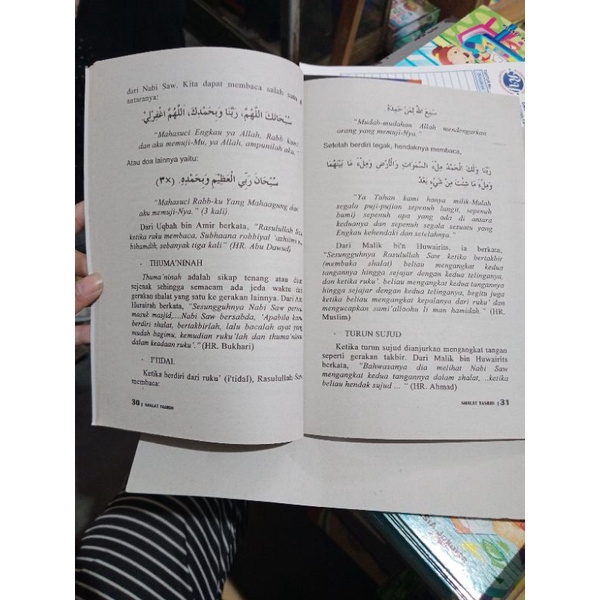 dari Nabi Saw. Kita dapat membaca salah satu
sataranya:
سُبْحَانَكَ اللَّهُمَّ، رَبَّنَا وَبِحَمْدِكَ، اللَّهُمَّ اغْفِرْلِيْ
"Mahasuci Engkau ya Allah, Rabb
dan aku memuji-Mu, ya Allah, ampunilah aku."
Atau doa lainnya yaitu:
سُبْحَانَ رَبِّيَ الْعَظِيْمِ وَبِحَمْدِهِ. (×٣)
"Mahasuci Rabb-ku Yang Mahaagung
aku memuji-Nya." (3 kali)
Dari Uqbah bin Amir berkata, "Rasulullah
ketika ruku membaca, Subhaana robbiyal 'azhiimi
bihamdih, sebanyak tiga kali" (HR. Abu Dawud)
- THUMA'NINAH
Thuma'ninah adalah sikap tenang atau diam
sejenak sehingga semacam ada jeda waktu
gerakan shalat yang satu ke gerakan lainnya. Dari Abu
Hurairah berkata, "Sesungguhnya Nabi Saw
masuk masjid,...Nabi Saw bersabda, 'Apabila
berdiri shalat, bertakbirlah, lalu bacalah ayat
mudah bagimu, kemudian ruku'lah dan thuma'ninah
dalam keadaan ruku'." (HR. Bukhari)
- I'TIDAL
Ketika berdiri dari ruku' (i'tidal), Rasulullah Saw
membaca:
30 | SHALAT TAHSIN
سَمِعَ اللهُ لِمَنْ حَمِدَهُ
"Mudah-mudahan Allah mendengarkan
orang yang memuji-Nya."
Setelah berdiri tegak, hendaknya membaca,
رَبَّنَا وَلَكَ الْحَمْدُ مِلْءَ السَّمَوَاتِ وَالْأَرْضِ وَمِلْءَ مَا بَيْنَهُمَا
وَمِلْءَ مَا شِئْتَ مِنْ شَيْءٍ بَعْدُ
"Ya Tuhan kami hanya milik-Mulah
segala puji-pujian sepenuh langit, sepenuh
bumi) sepenuh apa yang ada di antara
keduanya dan sepenuh segala sesuatu yang
Engkau kehendaki dan setelahnya."
Dari Malik bi'n Huwairits, ia berkata,
"Sesungguhnya Rasulullah Saw ketika bertakbir
(membuka shalat) beliau mengangkat kedua
tangannya hingga sejajar dengan kedua telinganya,
dan ketika ruku'. beliau mengangkat kedua tangannya
hingga sejajar dengan kedua telinganya, begitu juga
ketika beliau mengangkat kepalanya dari ruku' dan
mengucapkan sami'alloohu li man hamidah." (HR.
Muslim)
- TURUN SUJUD
Ketika turun sujud dianjurkan mengangkat tangan
seperti gerakan takbir. Dari Malik bin Huwairits
berkata, "Bahwasanya dia melihat Nabi Saw
mengangkat kedua tangannya dalam shalat, ..ketika
beliau hendak sujud ... " (HR. Ahmad)
| 31